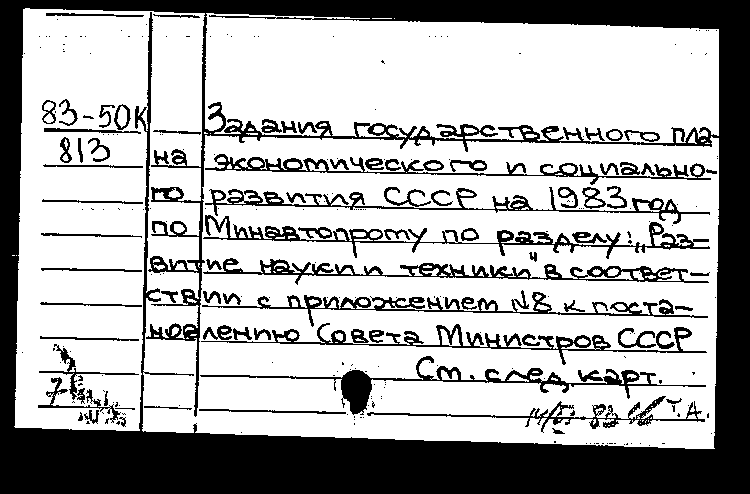 83-50К Задания государственного пла-
813 на экономического и социально-
го развития СССР на 1983 год
по Минавтопрому по разделу: „Раз-
витие науки и техники" в соответ-
ствии с приложением №8 к поста-
новлению Совета Министров СССР
См. след. карт.
Т.А.